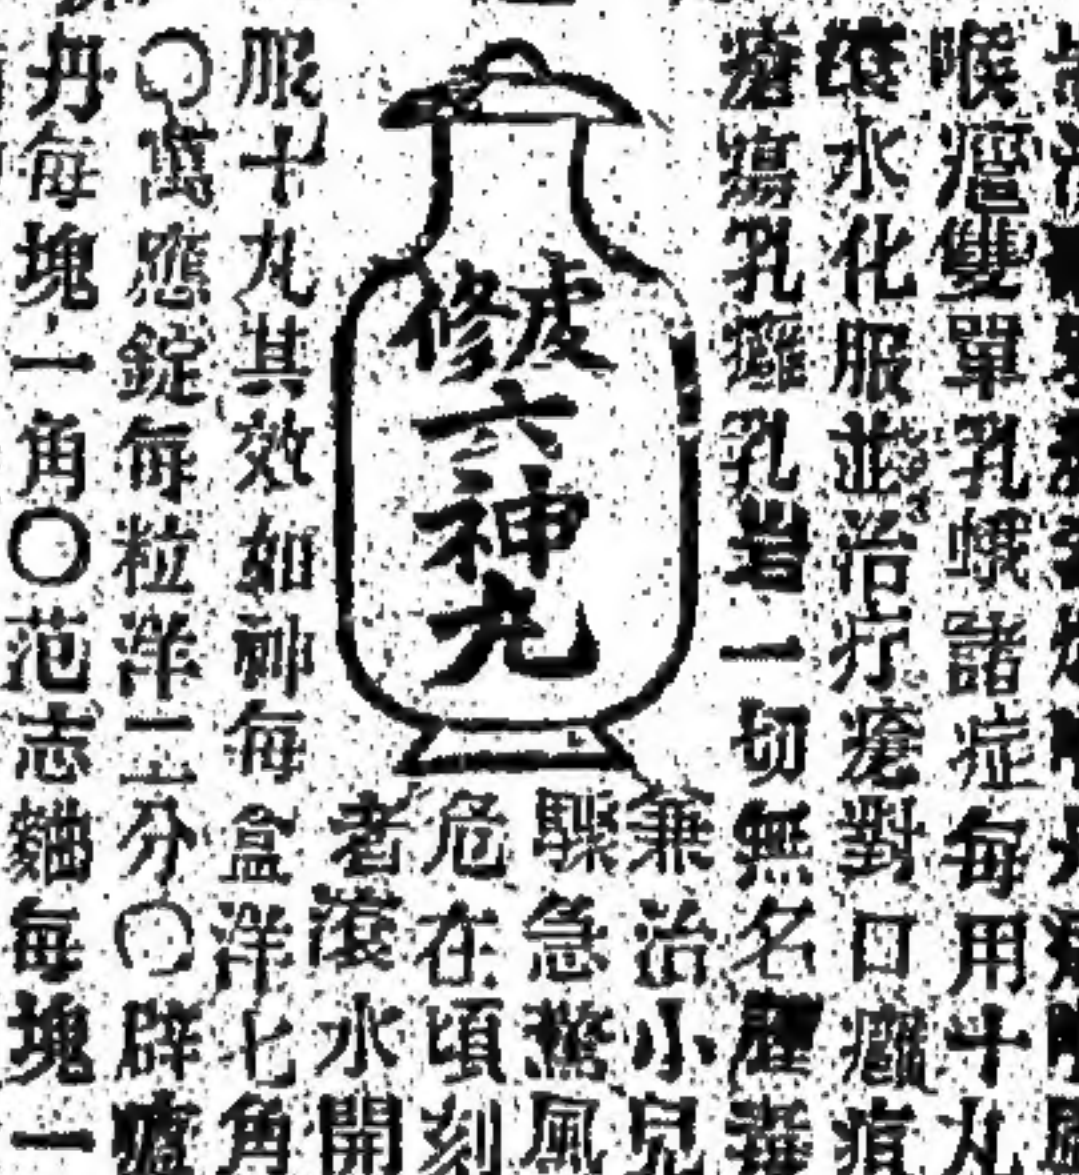 喉癰雙單乳蛾諸症每用十丸
滾水化服並治疔瘡對口癰疽
瘡瘍乳癰乳岩一切無名腫毒
虔修
六神丸
兼治小兒
驟急驚風
危在頃刻
者滾水開
服十丸其效如神每盒洋七角
〇萬應錠每粒洋二分〇辟瘟
丹每塊一角〇范志麯每塊一